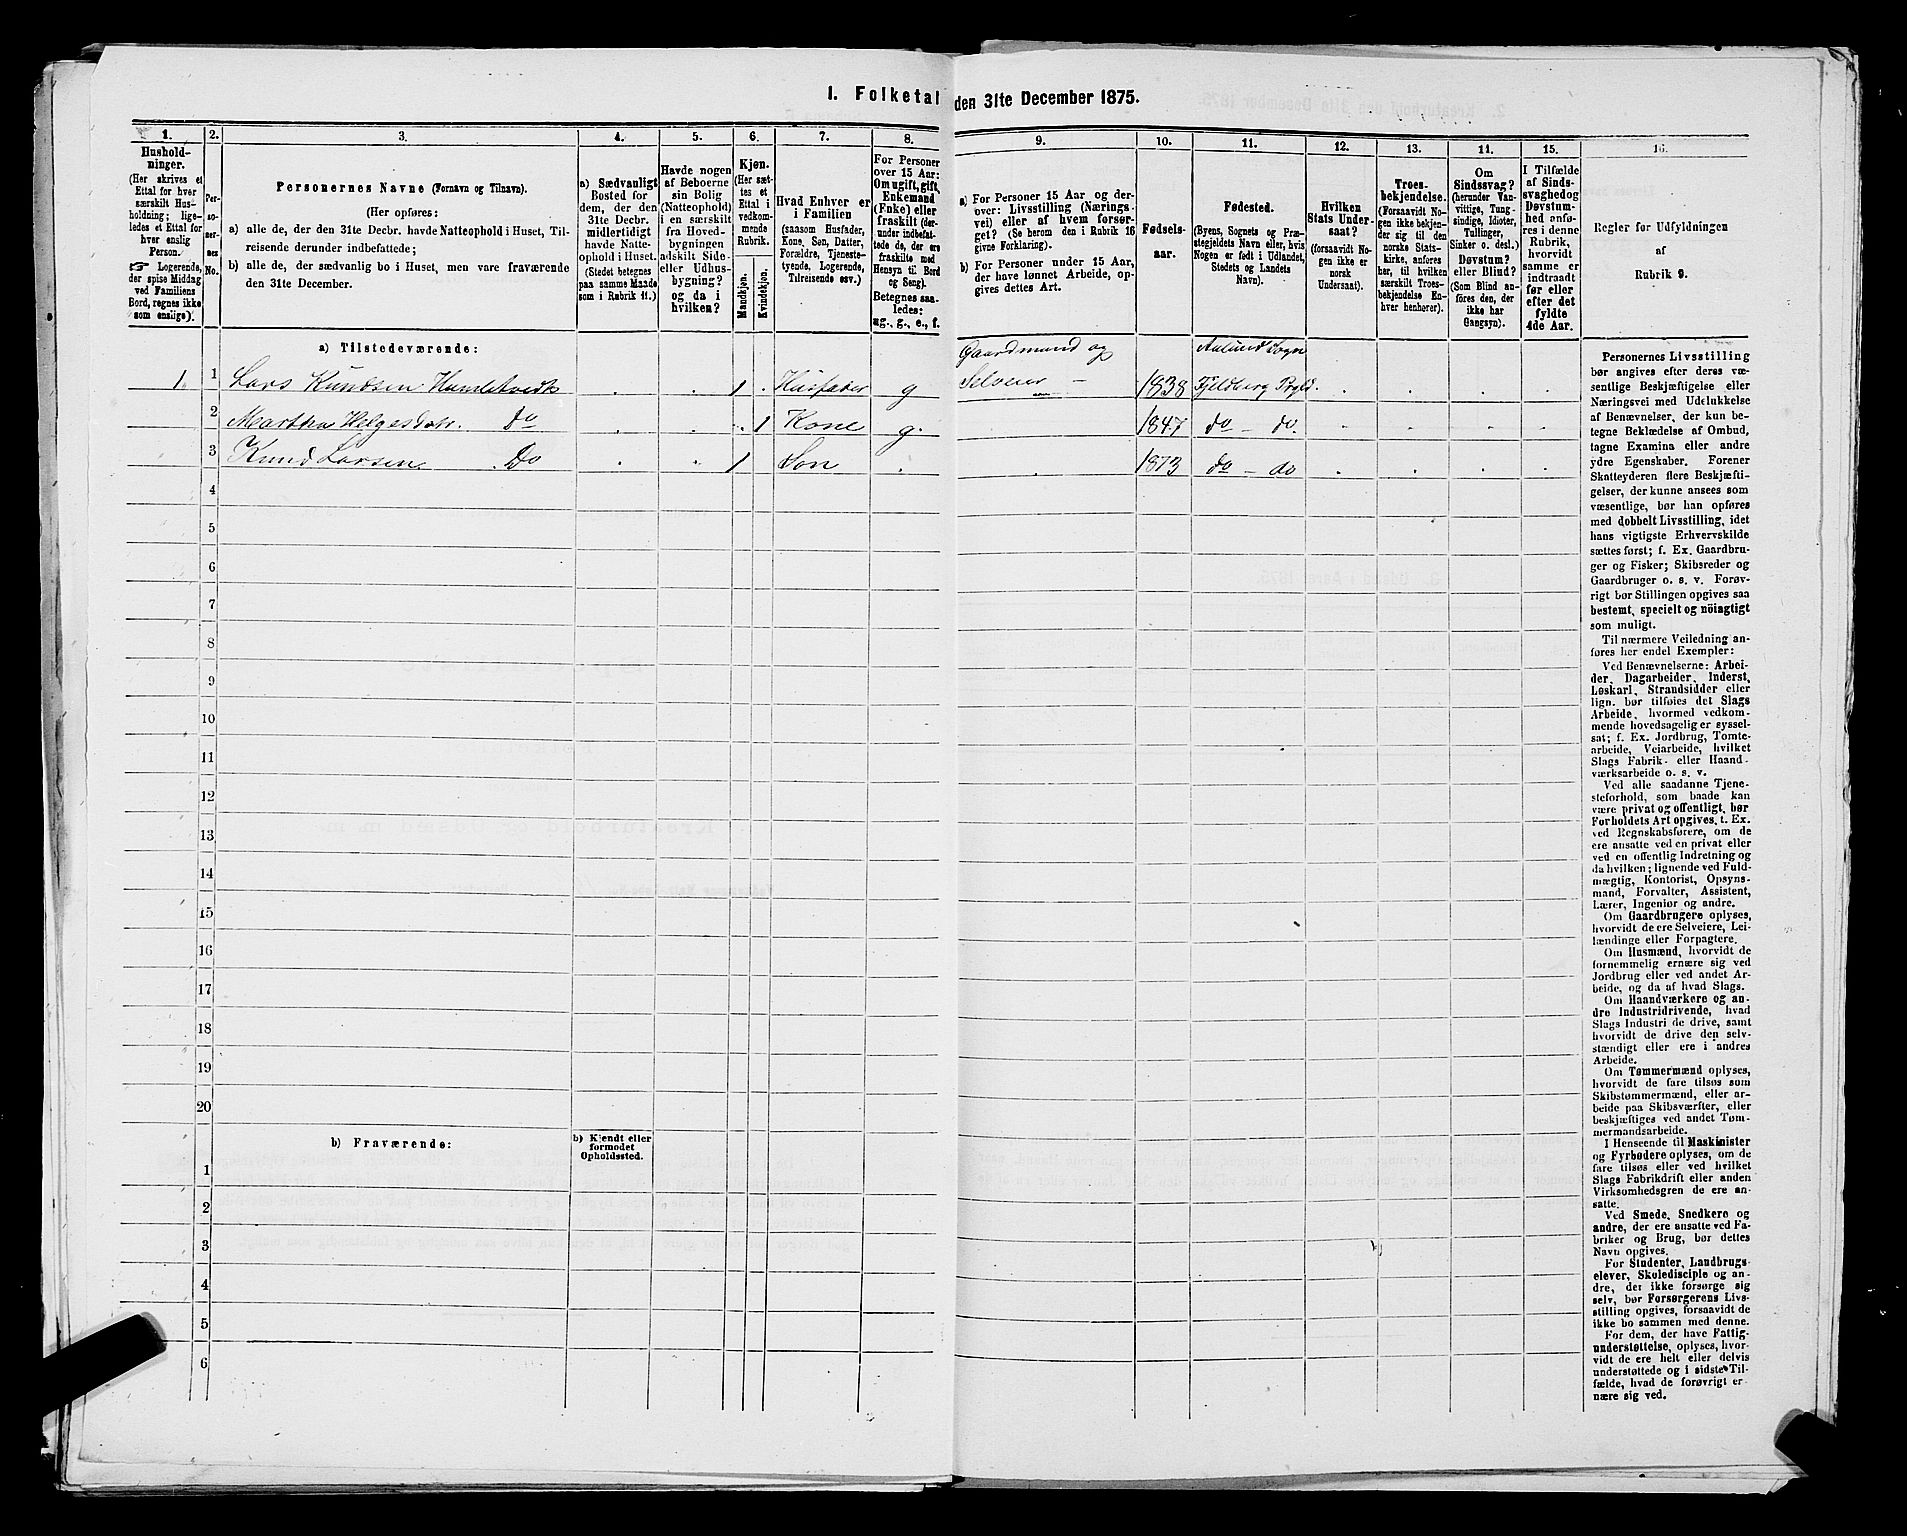 I. Folketal den 31te December 1875.
1.
2.
3.
4.
5.
6.
7.
8.
9.
10.
11.
12.
13.
11.
15.
16.
Hushold-
ninger.
(Her skrives et
Ettal for hver
særskilt Hus-
holdning; lige-
ledes et Ettal for
hver enslig
Person.
☞ Logerende,
der spise Middag
ved Familiens
Bord, regnes ikke
som enslige).
Per-
so-
ner-
nes
No.
Personernes Navne (Fornavn og Tilnavn).
(Her opføres:
a) alle de, der den 31te Decbr. havde Natteophold i Huset, Til-
reisende derunder indbefattede;
b) alle de, der sædvanlig bo i Huset, men vare fraværende
den 31te December.
a) Sædvanligt
Bosted for
dem, der den
31te Decbr.
midlertidigt
havde Natte-
ophold i Huset.
(Stedet betegnes
paa samme Maade
som i Rubrik 11.)
Havde nogen
af Beboerne
sin Bolig
(Natteophold)
i en særskilt
fra Hoved-
bygningen
adskilt Side-
eller Udhus-
bygning?
og da i
hvilken?
Kjøn.
(Her sæt-
tes et
Ettal i
vedkom-
mende
Rubrik.
Mandkjøn.
Kvindekjøn.
Hvad Enhver er
i Familien
(saasom Husfader,
Kone, Søn, Datter,
Forældre, Tjeneste-
tyende, Logerende,
Tilreisende osv.)
For Personer
over 15 Aar:
Om ugift, gift,
Enkemand
(Enke) eller
fraskilt (der-
under indbefat-
tede de, der ere
fraskilte med
Hensyn til Bord
og Seng).
Betegnes saa-
ledes:
ug., g., e., f.
a) For Personer 15 Aar og der-
over: Livsstilling (Nærings-
vei) eller af hvem forsør-
get? (Se herom den i Rubrik 16
givne Forklaring).
b) For Personer under 15 Aar,
der have lønnet Arbeide, op-
gives dettes Art.
Fødsels-
aar.
Fødested.
(Byens, Sognets og Præ-
stegjeldets Navn eller, hvis
Nogen er født i Udlandet,
Stedets og Landets
Navn).
Hvilken
Stats Under-
saat?
(forsaavidt No-
gen ikke er
norsk
Undersaat).
Troes-
bekjendelse.
(Forsaavidt No-
gen ikke bekjen-
der sig til den
norske Stats-
kirke, anføres
her, til hvilken
særskilt Troes-
bekjendelse En-
hver henhører).
Om
Sindssvag?
(herunder Van-
vittige, Tung-
sindige, Idioter,
Tullinger,
Sinker o. desl.)
Døvstum?
eller Blind?
(Som Blind an-
føres den, der
ikke har
Gangsyn).
I Tilfælde
af Sinds-
svaghed og
Døvstum-
hed anfø-
res i denne
Rubrik,
hvorvidt
samme er
indtraadt
før eller
efter det
fyldte
4de Aar.
Regler for Udfyldningen
af
Rubrik 9.
a) Tilstedeværende:
Gaardmand og Aalund Sogn
1. 1 Lars Knudsen Hamletvedt . . 1 . Husfader g Selveier — 1838 Fjeldberg Prgld. . . . .
2 Martha Helgesdatr. Do . . . 1 Kone g. 1847 do — do. . . . .
3 Knud Larsen . Do . . 1 Søn . . 1873 do — do . . . .
4
5
6
7
8
9
10
11
12
13
14
15
16
17
18
19
20
b) Fraværende:
b) Kjendt eller
formodet
Opholdssted.
1
2
3
4
5
6
Personernes Livsstilling
bør angives efter deres væ-
sentlige Beskjæftigelse eller
Næringsvei med Udelukkelse
af Benævnelser, der kun be-
tegne Beklædelse af Ombud,
tagne Examina eller andre
ydre Egenskaber. Forener
Skatteyderen flere Beskjæfti-
gelser, der kunne ansees som
væsentlige, bør han opføres
med dobbelt Livsstilling, idet
hans vigtigste Erhvervskilde
sættes først; f. Ex. Gaardbru-
ger og Fisker; Skibsreder og
Gaardbruger o. s. v. Forøv-
rigt bør Stillingen opgives saa
bestemt, specielt og nöiagtigt
som muligt.
Til nærmere Veiledning an-
føres her endel Exempler:
Ved Benævnelserne: Arbei-
der, Dagarbeider, Inderst,
Løskarl, Strandsidder eller
lign. bør tilføies det Slags
Arbeide, hvormed vedkom-
mende hovedsagelig er syssel-
sat; f. Ex. Jordbrug, Tomte-
arbeide, Veiarbeide, hvilket
Slags Fabrik- eller Haand-
værksarbeide o. s. v.
Ved alle saadanne Tjene-
steforhold, som baade kan
være privat og offentligt, bør
Forholdets Art opgives, t. Ex.
ved Regnskabsførere, om de
ere ansatte ved en privat eller
ved en offentlig Indretning og
da hvilken; lignende ved Fuld-
mægtig, Kontorist, Opsyns-
mand, Forvalter, Assistent,
Lærer, Ingeniør og andre.
Om Gaardbrugere oplyses,
hvorvidt de ere Selveiere, Lei-
lændinge eller Forpagtere.
Om Husmænd, hvorvidt de
fornemmelig ernære sig ved
Jordbrug eller ved andet Ar-
beide, og da af hvad Slags.
Om Haandværkere og an-
dre Industridrivende, hvad
Slags Industri de drive, samt
hvorvidt de drive den selv-
stændigt eller ere i andres
Arbeide.
Om Tømmermænd oplyses,
hvorvidt de fare tilsøs som
Skibstømmermænd, eller ar-
beide paa Skibsværfter, eller
beskjæftiges ved andet Tøm-
mermandsarbeide.
I Henseende til Maskinister
og Fyrbødere oplyses, om de
fare tilsøs eller ved hvilket
Slags Fabrikdrift eller anden
Virksomhedsgren de ere an-
satte.
Ved Smede, Snedkere og
andre, der ere ansatte ved Fa-
briker og Brug, bør dettes
Navn opgives.
For Studenter, Landbrugs-
elever, Skoledisciple og an-
dre, der ikke forsørge sig
selv, bør Forsørgerens Livs-
stilling opgives, forsaavidt de
ikke bo sammen med denne.
For dem, der have Fattig-
understøttelse, oplyses, hvor-
vidt de ere helt eller delvis
understøttede og i sidste Til-
fælde, hvad de forøvrigt er-
nære sig ved.